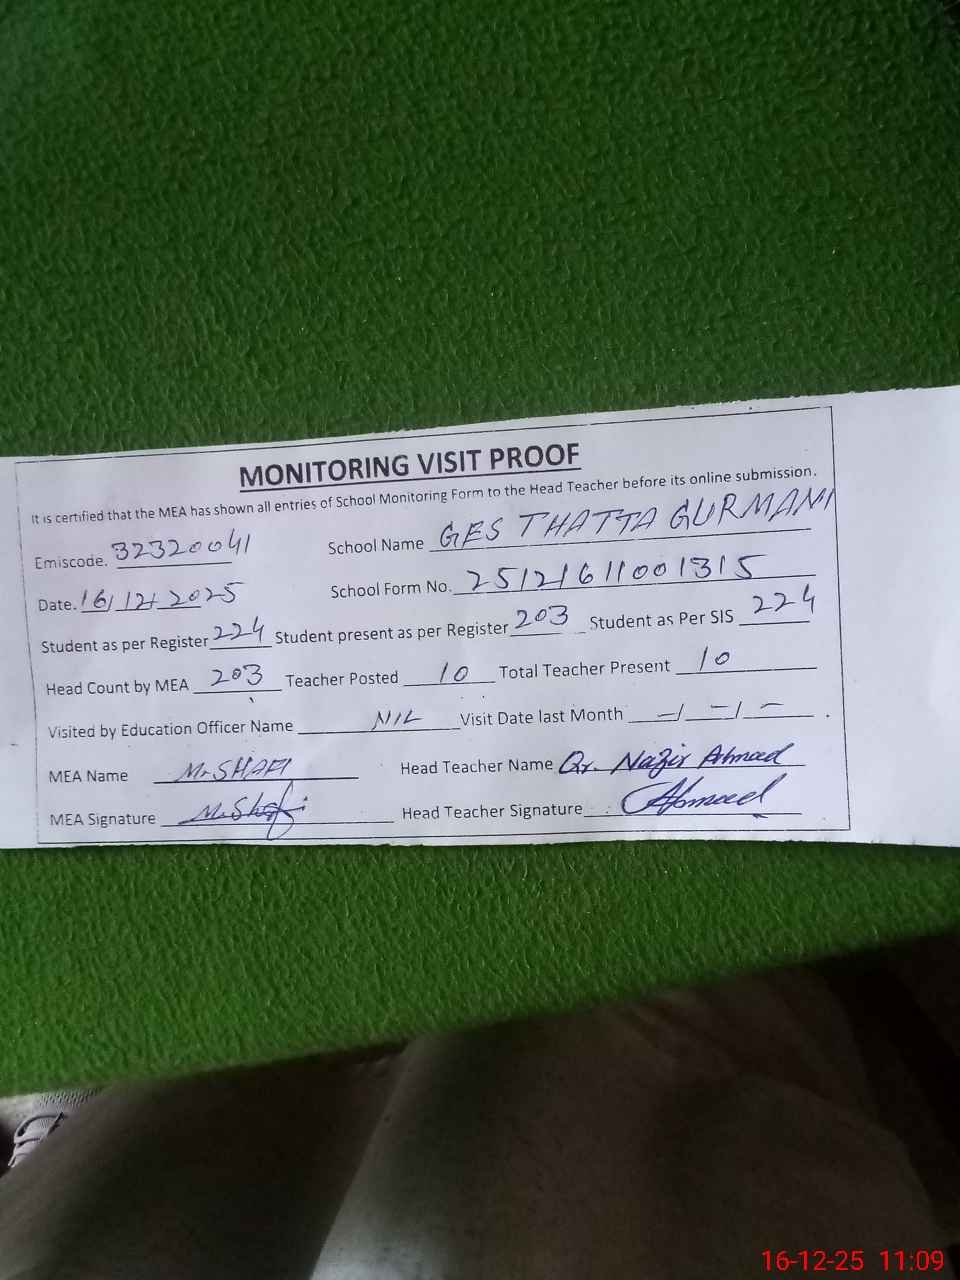 MONITORING VISIT PROOF
It is certified that the MEA has shown all entries of School Monitoring Form to the Head Teacher before its online submission.
Emiscode. 32320041 School Name GES THATTA GURMANI
Date. 16/12/2025 School Form No. 25121611001315
Student as per Register 224 Student present as per Register 203 Student as Per SIS 224
Head Count by MEA 203 Teacher Posted 10 Total Teacher Present 10
Visited by Education Officer Name NIL Visit Date last Month -/-/- .
MEA Name M.SHAFI Head Teacher Name Qr. Nazir Ahmad
MEA Signature M.Shafi Head Teacher Signature Ahmad
16-12-25 11:09